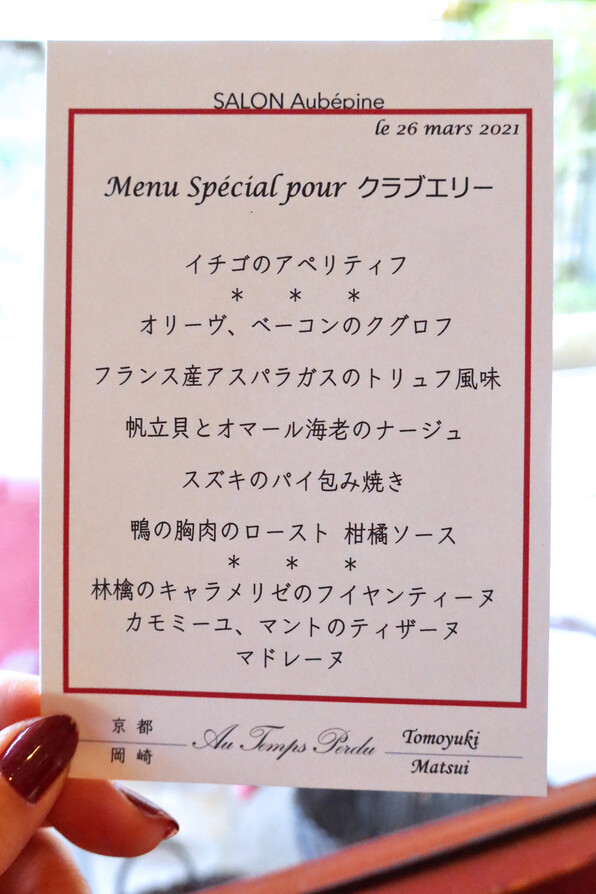 SALON Aubépine
le 26 mars 2021
Menu Spécial pour クラブエリー
イチゴのアペリティフ
* * *
オリーヴ、ベーコンのクグロフ
フランス産アスパラガスのトリュフ風味
帆立貝とオマール海老のナージュ
スズキのパイ包み焼き
鴨の胸肉のロースト 柑橘ソース
* * *
林檎のキャラメリゼのフイヤンティーヌ
カモミーユ、マントのティザーヌ
マドレーヌ
京都
岡崎
Au Temps Perdu
Tomoyuki
Matsui